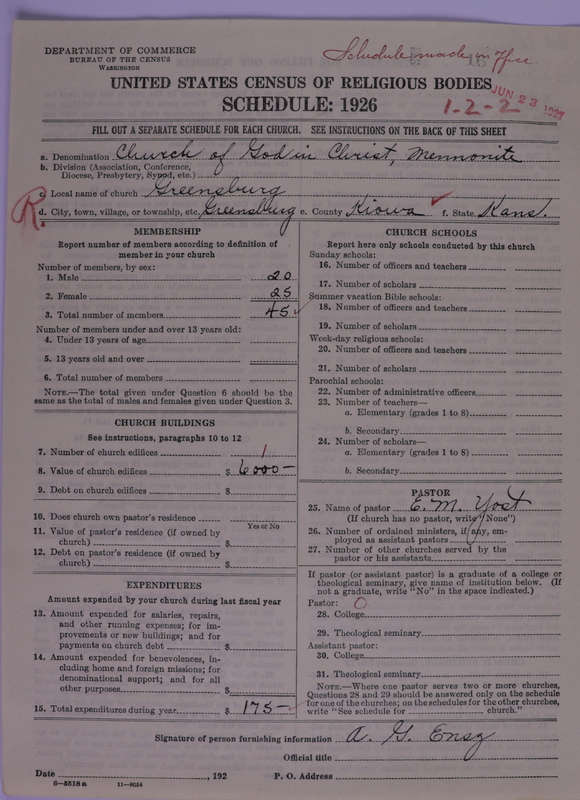 DEPARTMENT OF COMMERCE
BUREAU OF THE CENSUS
WASHINGTON
Schedule made in office
UNITED STATES CENSUS OF RELIGIOUS BODIES
JUN 23 1927
SCHEDULE: 1926
1-2-2
FILL OUT A SEPARATE SCHEDULE FOR EACH CHURCH. SEE INSTRUCTIONS ON THE BACK OF THIS SHEET
a. Denomination Church of God in Christ, Mennonite
b. Division (Association, Conference, Diocese, Presbytery, Synod, etc.)
c. Local name of church Greensburg
R. d. City, town, village, or township, etc. Greensburg e. County Kiowa f. State Kans.
MEMBERSHIP
Report number of members according to definition of member in your church
Number of members, by sex:
1. Male 20
2. Female 25
3. Total number of members 45
Number of members under and over 13 years old:
4. Under 13 years of age
5. 13 years old and over
6. Total number of members
NOTE.—The total given under Question 6 should be the same as the total of males and females given under Question 3.
CHURCH BUILDINGS
See instructions, paragraphs 10 to 12
7. Number of church edifices 1
8. Value of church edifices $ 6000—
9. Debt on church edifices $
10. Does church own pastor's residence
Yes or No
11. Value of pastor's residence (if owned by church) $
12. Debt on pastor's residence (if owned by church) $
EXPENDITURES
Amount expended by your church during last fiscal year
13. Amount expended for salaries, repairs, and other running expenses; for improvements or new buildings; and for payments on church debt $
14. Amount expended for benevolences, including home and foreign missions; for denominational support; and for all other purposes $
15. Total expenditures during year $ 175—
CHURCH SCHOOLS
Report here only schools conducted by this church
Sunday schools:
16. Number of officers and teachers
17. Number of scholars
Summer vacation Bible schools:
18. Number of officers and teachers
19. Number of scholars
Week-day religious schools:
20. Number of officers and teachers
21. Number of scholars
Parochial schools:
22. Number of administrative officers
23. Number of teachers—
a. Elementary (grades 1 to 8)
b. Secondary
24. Number of scholars—
a. Elementary (grades 1 to 8)
b. Secondary
PASTOR
25. Name of pastor E. M. Yost
(If church has no pastor, write "None")
26. Number of ordained ministers, if any, employed as assistant pastors
27. Number of other churches served by the pastor or his assistants
If pastor (or assistant pastor) is a graduate of a college or theological seminary, give name of institution below. (If not a graduate, write "No" in the space indicated.)
Pastor: O
28. College
29. Theological seminary
Assistant pastor:
30. College
31. Theological seminary
NOTE.—Where one pastor serves two or more churches, Questions 28 and 29 should be answered only on the schedule for one of the churches; on the schedules for the other churches, write "See schedule for church."
Signature of person furnishing information A. G. Ensz
Official title
Date , 192 P. O. Address
8—5518a 11—9034